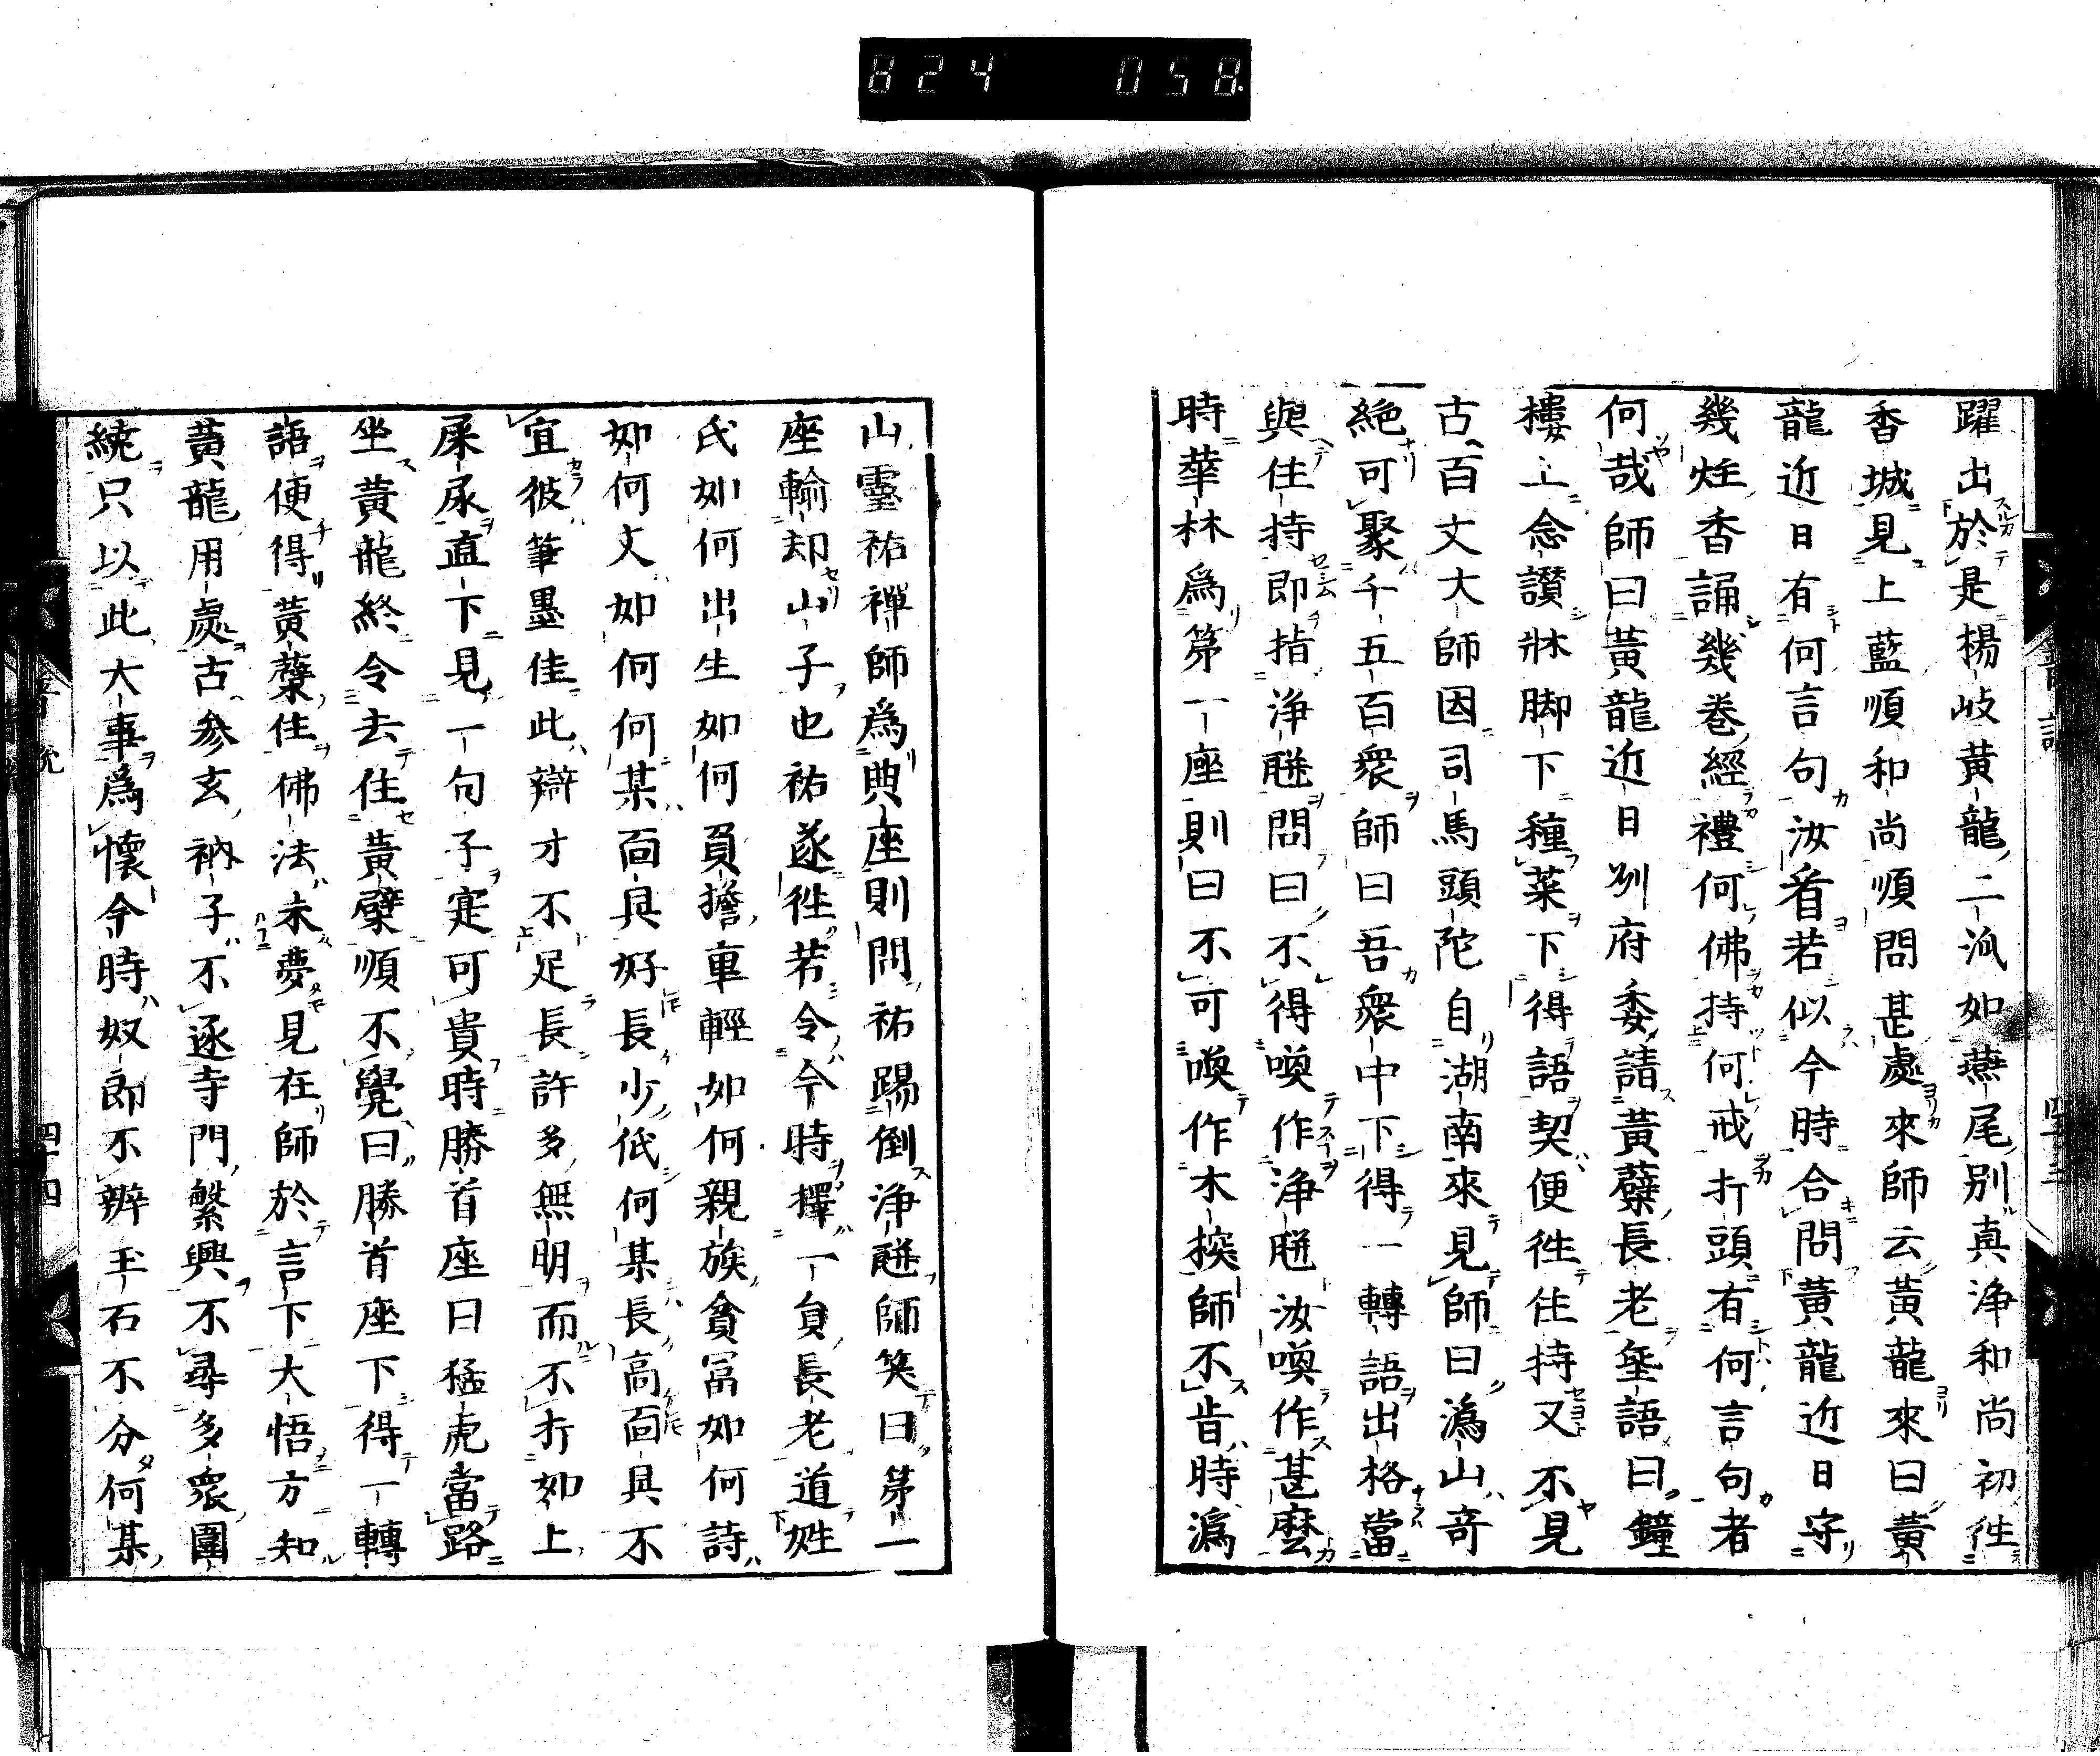 824 058
躍出於是楊岐黃龍二派如燕尾別真淨和尚初徃
香城見上藍順和尚順問甚處來師云黃龍來曰黃
龍近日有何言句汝看若似今時合問黃龍近日守
幾炷香誦幾卷經禮何佛持何戒打頭有何言句者
何哉師曰黃龍近日州府委請黃蘗長老垂語曰鐘
樓上念讚牀脚下種菜下得語契便徃住持又不見
古百丈大師因司馬頭陀自湖南來見師曰潙山奇
絕可聚千五百衆師曰吾衆中下得一轉語出格當
與住持即指淨瓶問曰不得喚作淨瓶汝喚作甚麼
時華林爲第一座則曰不可喚作木𣔻師不肯時潙
山靈祐禪師爲典座則問祐踢倒淨瓶師笑曰第一
座輸却山子也祐遂徃若令今時擇一員長老道姓
氏如何出生如何負擔車輕如何親族貧冨如何詩
如何文如何何某面具好長少低何某長高面具不
宜彼筆墨佳此辯才不足長許多無明而不打如上
屎尿直下見一句子寔可貴時勝首座曰猛虎當路
坐黃龍終令去住黃檗順不覺曰勝首座下得一轉
語便得黃蘗住佛法未夢見在師於言下大悟方知
黃龍用處古參玄衲子不逐寺門繁興不尋多衆圍
繞只以此大事爲懷今時奴郎不辨玉石不分何某